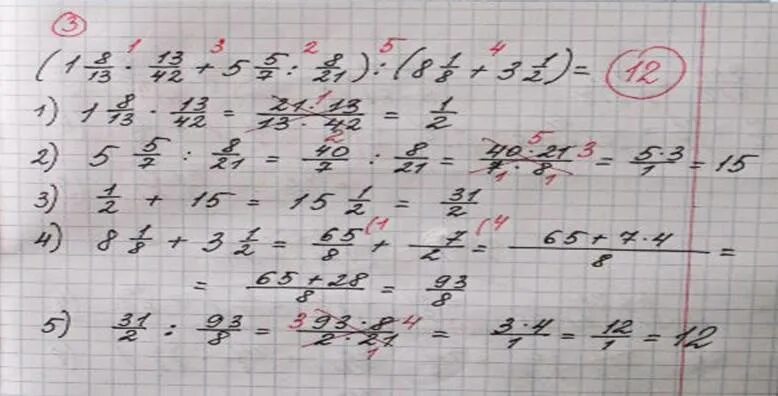 3
(1 8/13 · 13/42 + 5 5/7 : 8/21) : (8 1/8 + 3 1/2) = 12
1 3 2 5 4
1) 1 8/13 · 13/42 = 21·13/13·42 = 1/2
1 2
2) 5 5/7 : 8/21 = 40/7 : 8/21 = 40·21/7·8 = 5·3/1 = 15
5 3 1 1
3) 1/2 + 15 = 15 1/2 = 31/2
4) 8 1/8 + 3 1/2 = 65/8 (1 + 7/2 (4 = 65+7·4/8 =
= 65+28/8 = 93/8
5) 31/2 : 93/8 = 93·8/2·21 = 3·4/1 = 12/1 = 12
3 4 1